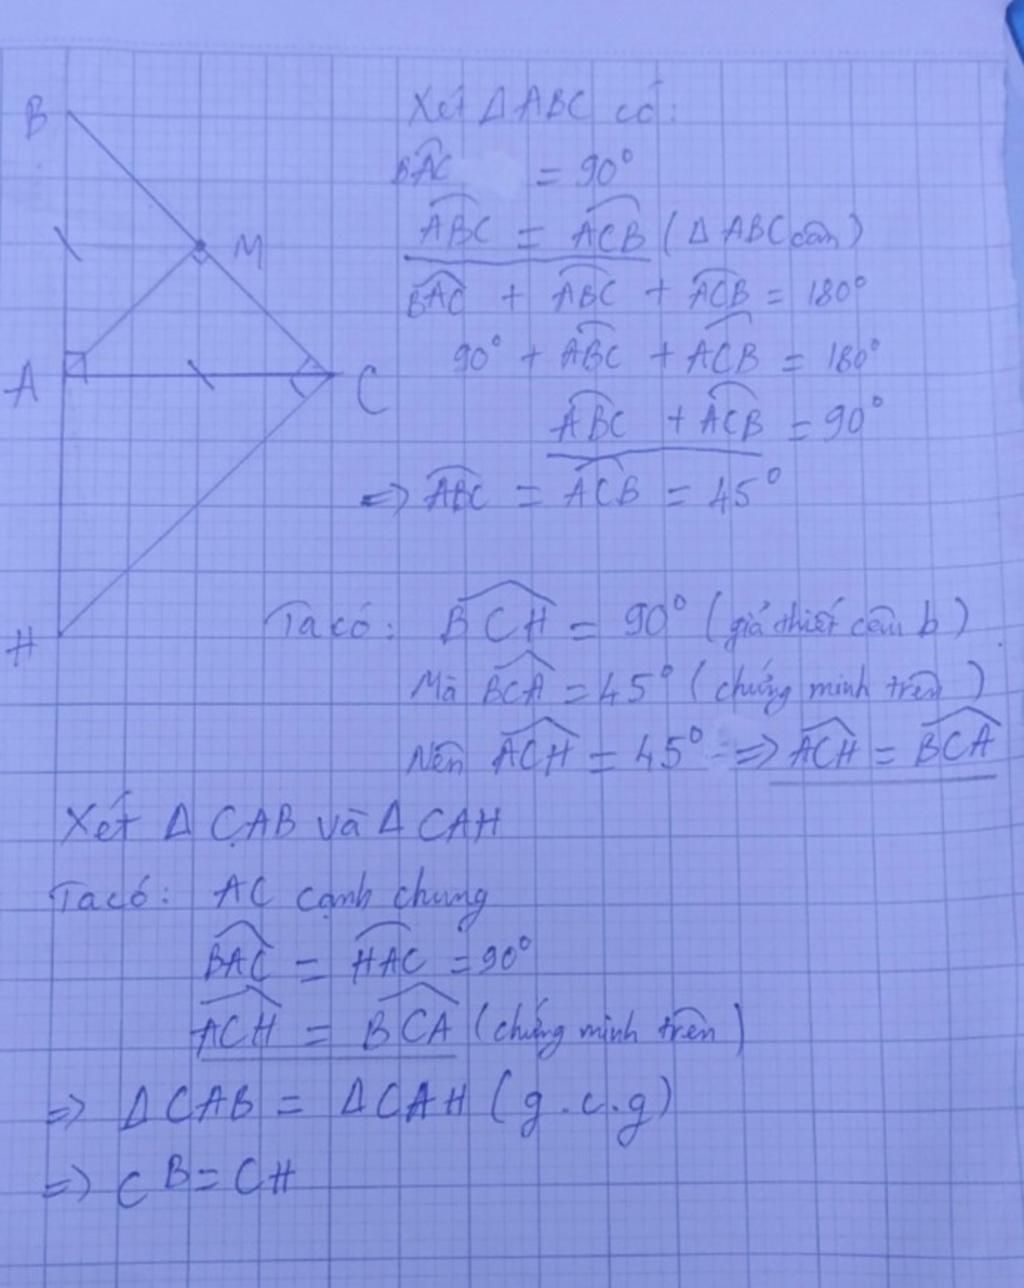 B
M
A
C
H
Xét ΔABC có:
BAC = 90°
ABC = ACB (ΔABC cân)
BAC + ABC + ACB = 180°
90° + ABC + ACB = 180°
ABC + ACB = 90°
=> ABC = ACB = 45°
Ta có: BCH = 90° (giả thiết câu b)
Mà BCA = 45° (chứng minh trên)
Nên ACH = 45° => ACH = BCA
Xét Δ CAB và Δ CAH
Ta có: AC cạnh chung
BAC = HAC = 90°
ACH = BCA (chứng minh trên)
=> ΔCAB = ΔCAH (g.c.g)
=> CB = CH